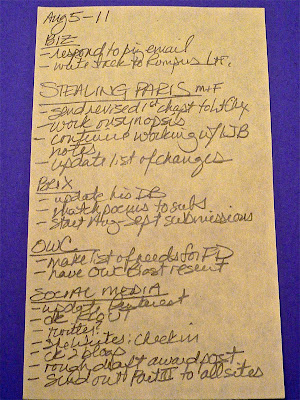 Aug 5-11
BIZ
- respond to pig email
- write back to Rumpus Lit.
STEALING PARIS M+F
- send revised 1st chapt to
- work on synopsis
- continue working w/ WB
notes
- update list of changes
- update his DB
- match poems to subs
- start Aug-Sept submissions
OWC
- make list of needs for PD
- have OWC Boast resent
SOCIAL MEDIA
- update Pinterest
- ck Blog
- twitter?
- websites: check in
- ck 2 blogs
- rough draft award post
- send out Part II to all sites